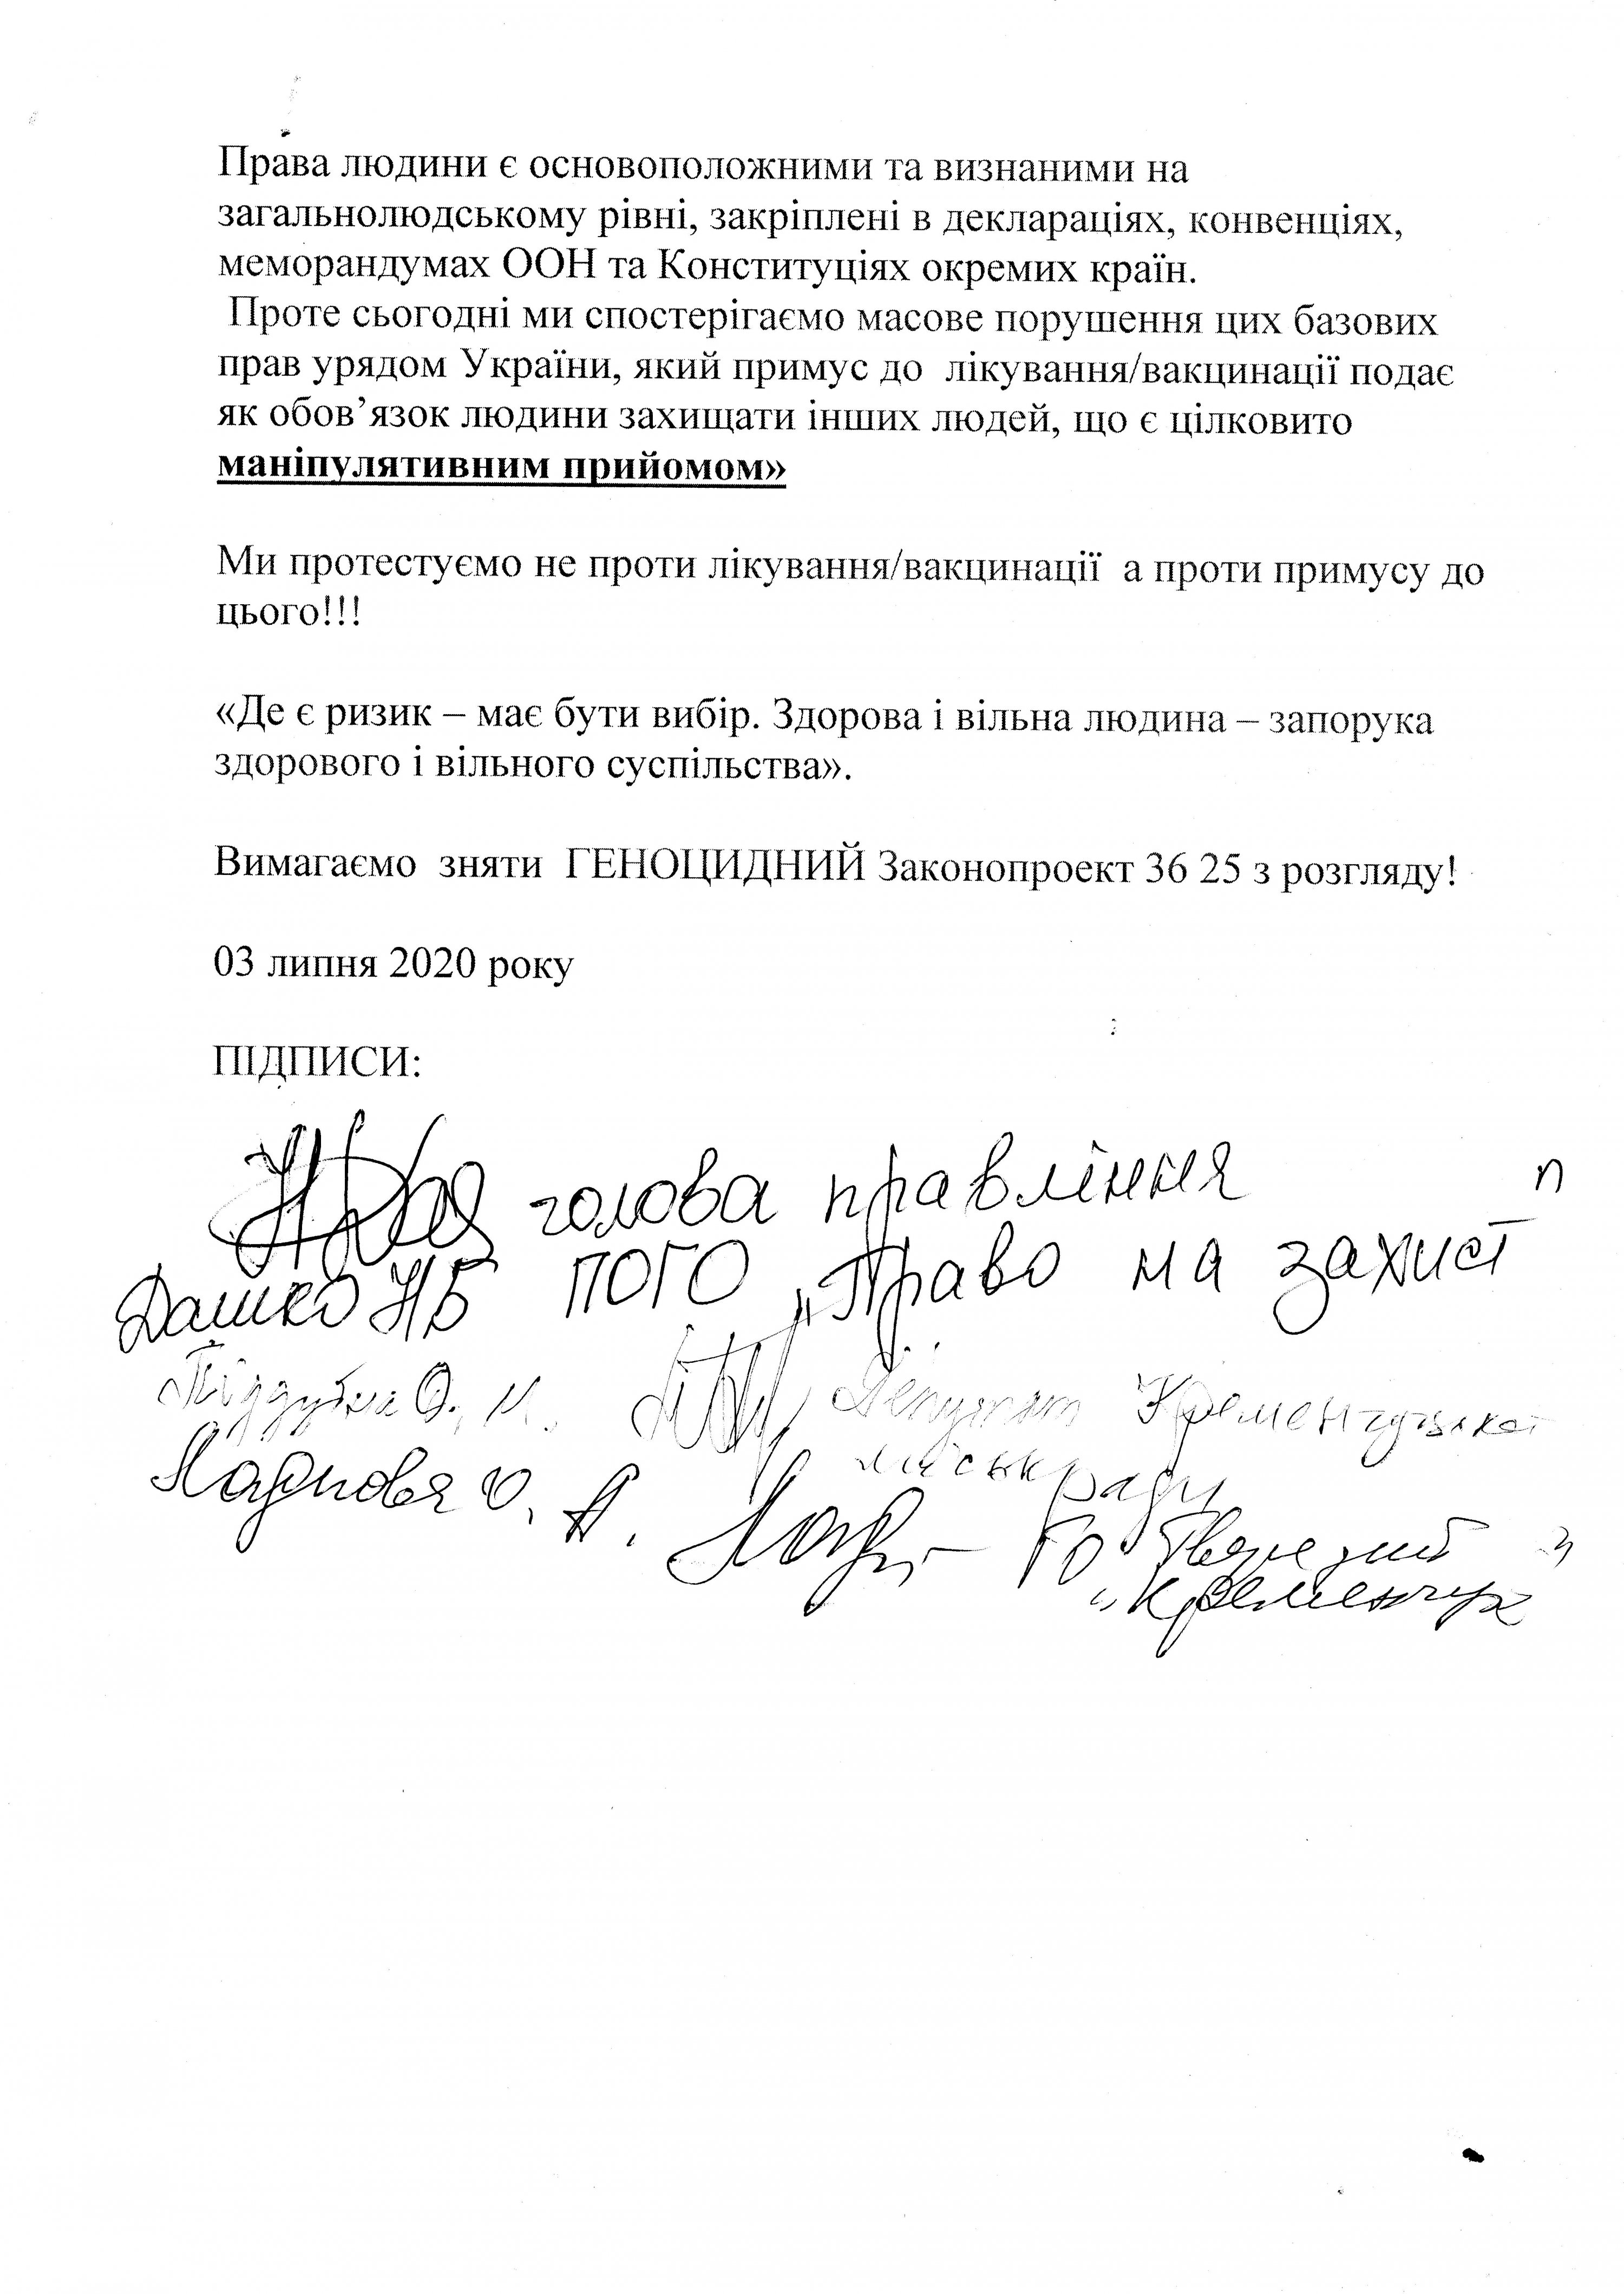 Права людини є основоположними та визнаними на
загальнолюдському рівні, закріплені в деклараціях, конвенціях,
меморандумах ООН та Конституціях окремих країн.
Проте сьогодні ми спостерігаємо масове порушення цих базових
прав урядом України, який примус до лікування/вакцинації подає
як обов’язок людини захищати інших людей, що є цілковито
маніпулятивним прийомом»
Ми протестуємо не проти лікування/вакцинації а проти примусу до
цього!!!
«Де є ризик – має бути вибір. Здорова і вільна людина – запорука
здорового і вільного суспільства».
Вимагаємо зняти ГЕНОЦИДНИЙ Законопроект 36 25 з розгляду!
03 липня 2020 року
ПІДПИСИ:
голова правління
Дашко Н Б ПОГО „Право на захист"
Піддубна О. М. Депутат Кременчуцької
міськради
О. А. ГО Тверезий
Кременчук"